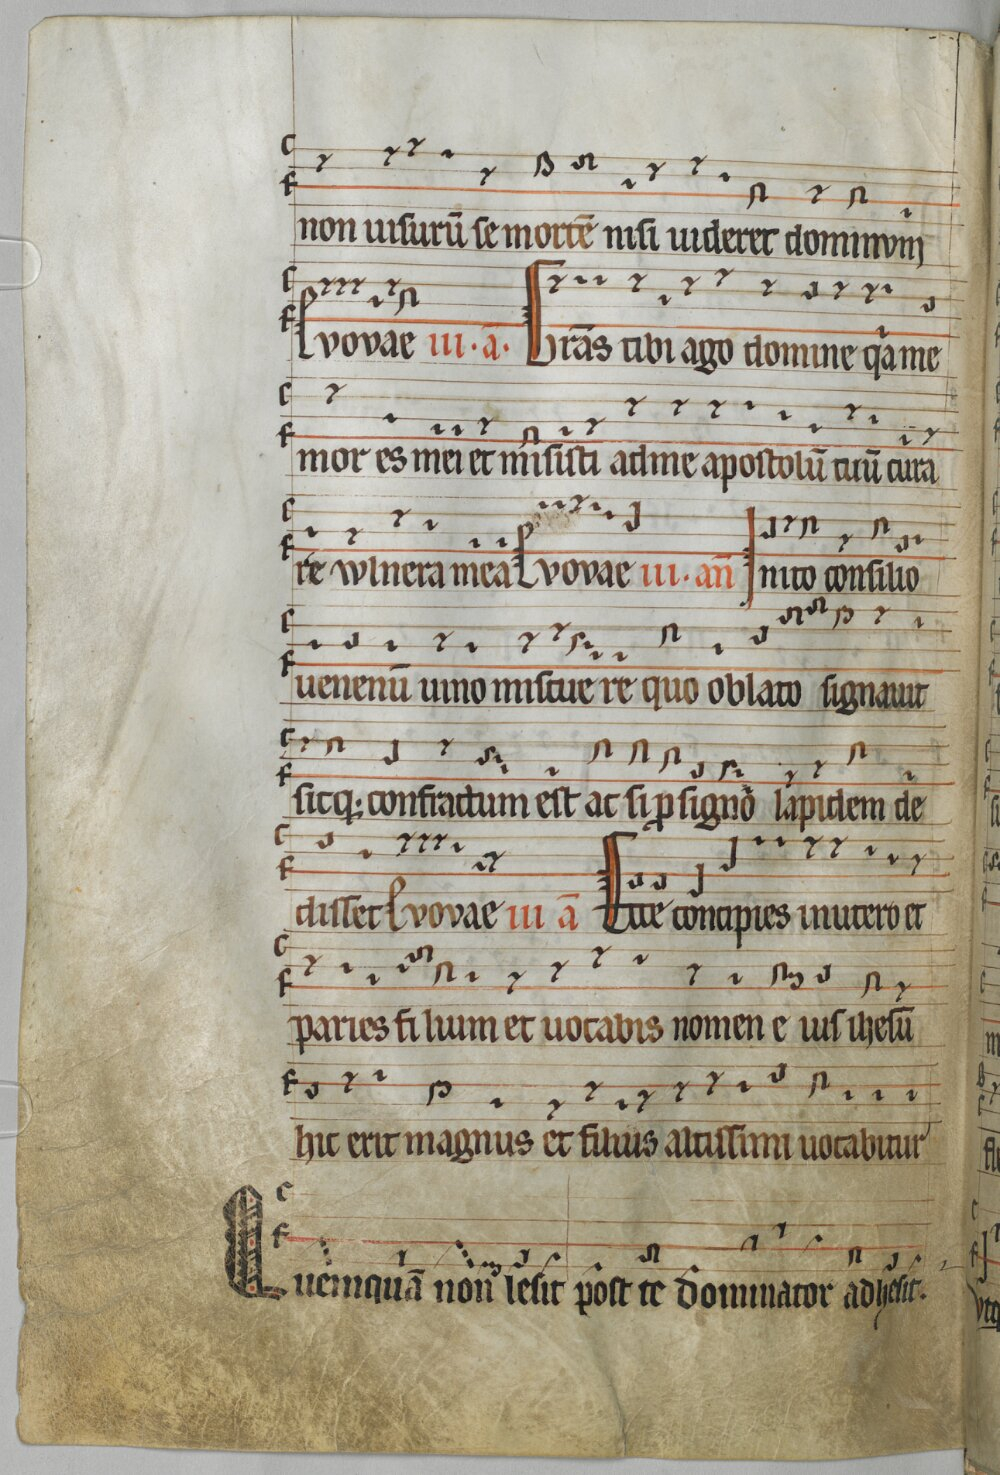 non uisurū se mortē nisi uideret dominum
Euovae iii. a. Grās tibi ago domine qa me
mor es mei et misisti ad me apostolū tuū cura
re wlnera mea Euovae iii. an Inito consilio
uenenū uino miscue re quo oblato signauit
sicq; confractum est ac si p signo lapidem de
disset Euovae iii a Ecce concipies in utero et
paries fi lium et uocabis nomen e ius ihesū
hic erit magnus et filius altissimi uocabitur
Quemquā non lesit post te dominator adhesit.